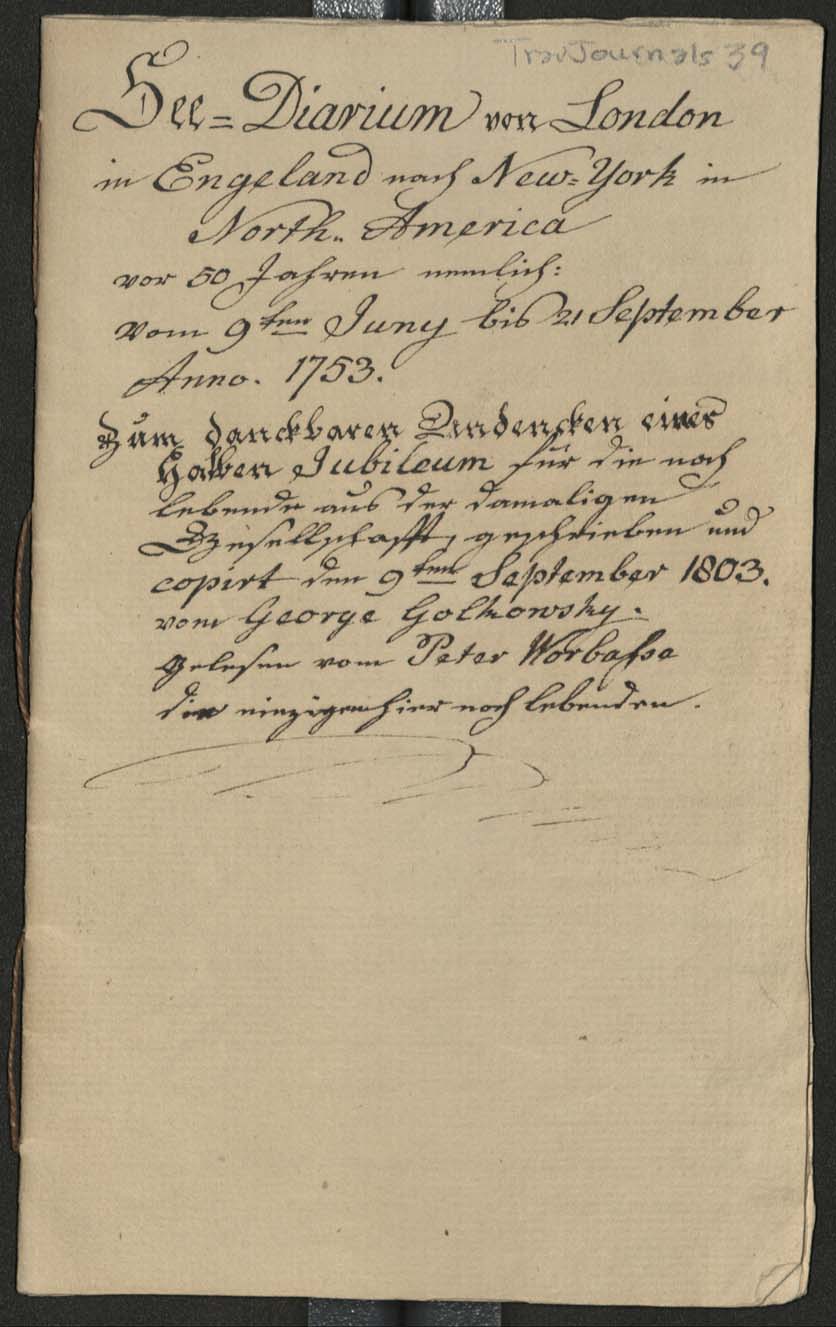 TravJournals 39
See=Diarium von London
in Engeland nach New=York in
North. America
vor 50 Jahren nemlich:
vom 9ten Juny bis 21 September
Anno. 1753.
Zum danckbaren Andencken eines
halben Jubileum für die noch
lebende aus der damaligen
Gesellschafft, geschrieben und
copirt den 9ten September 1803.
vom George Golkowsky.
gelesen vom Peter Worbasse
die einzigen hier noch lebenden.